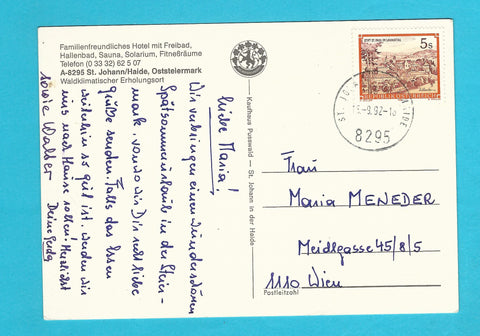 Familienfreundliches Hotel mit Freibad,
Hallenbad, Sauna, Solarium, Fitneßräume
Telefon (0 33 32) 62 5 07
A-8295 St. Johann/Haide, Oststeiermark
Waldklimatischer Erholungsort
Liebe Maria!
Wir verbringen einen wunderschönen
Spätsommerurlaub in der Steier-
mark, von wo wir Dir recht liebe
Grüße senden. Falls das Essen
weiterhin so geil ist, werden wir
uns nach Hause rollen! Herzlichst
Deine Gerda
sowie Walter
Kaufhaus Pusswald — St. Johann in der Haide
5s
8295
Frau
Maria MENEDER
Meidlgasse 45/8/5
1110 Wien
Postleitzahl